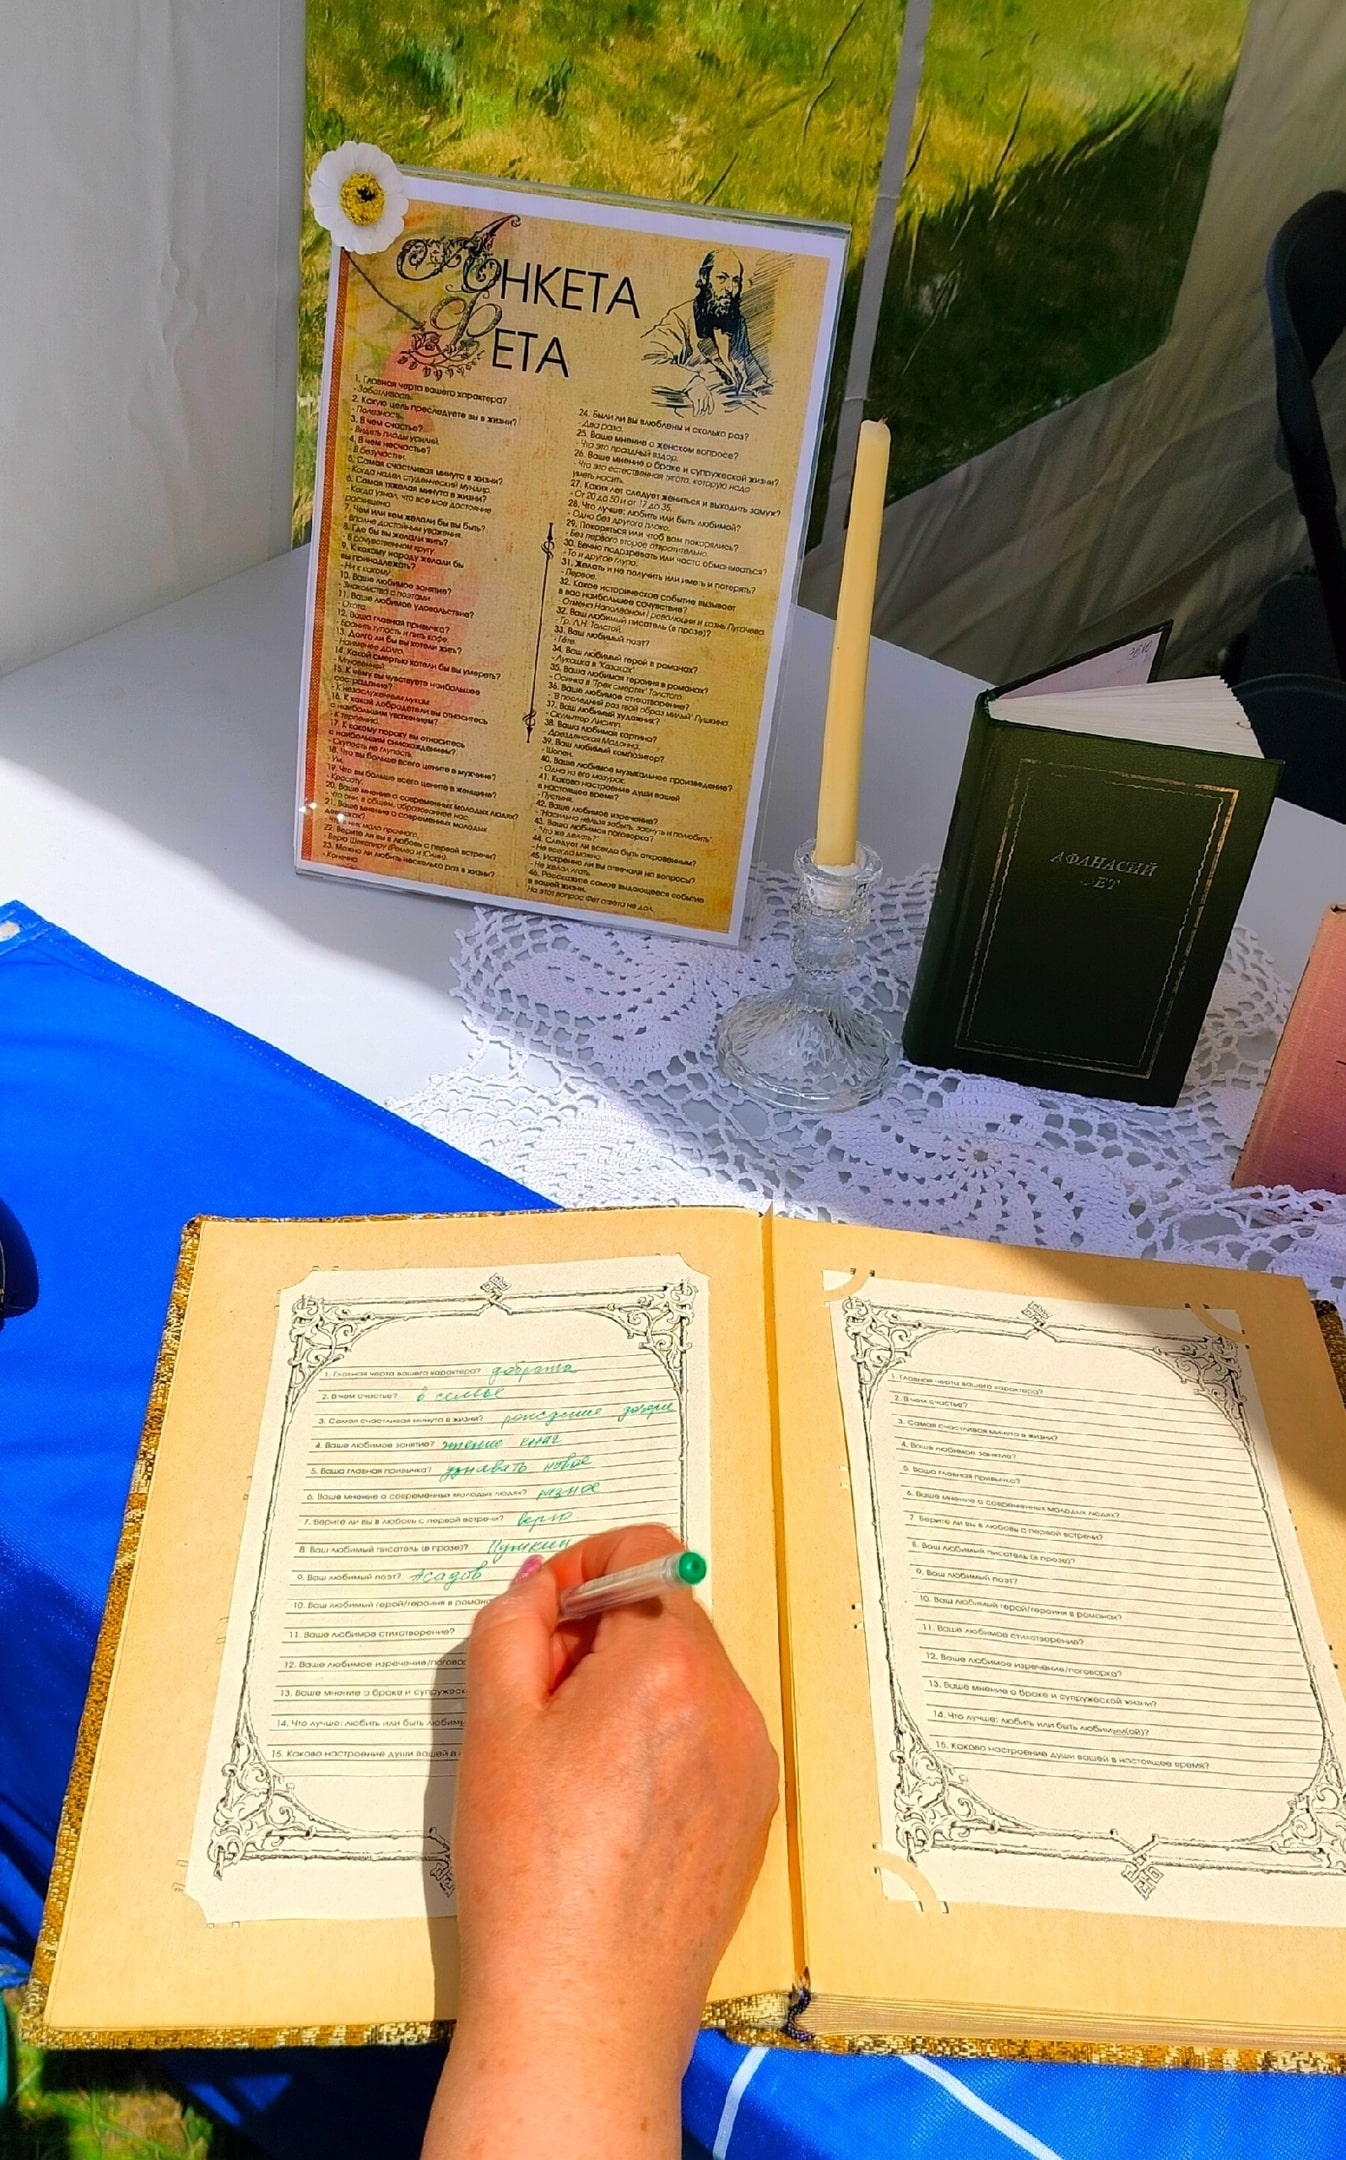 АНКЕТА
ФЕТА
1. Главная черта вашего характера?
- Заботливость.
2. Какую цель преследуете вы в жизни?
- Полезность.
3. В чем счастье?
- Видеть плоды усилий.
4. В чем несчастье?
- В безучастии.
5. Самая счастливая минута в жизни?
- Когда надел студенческий мундир.
6. Самая тяжелая минута в жизни?
- Когда узнал, что все мое достояние
расхищено.
7. Чем или кем желали бы вы быть?
- Вполне достойным уважения.
8. Где бы вы желали жить?
- В сочувственном кругу.
9. К какому народу желали бы
вы принадлежать?
- Ни к какому.
10. Ваше любимое занятие?
- Знакомство с поэтами.
11. Ваше любимое удовольствие?
- Охота.
12. Ваша главная привычка?
- Бранить глупость и пить кофе.
13. Долго ли бы вы хотели жить?
- Наименее долго.
14. Какой смертью хотели бы вы умереть?
- Мгновенной.
15. К чему вы чувствуете наибольшее
сострадание?
- К незаслуженным мукам.
16. К какой добродетели вы относитесь
с наибольшим уважением?
- К терпению.
17. К какому пороку вы относитесь
с наибольшим снисхождением?
- Скупость не глупость.
18. Что вы больше всего цените в мужчине?
- Ум.
19. Что вы больше всего цените в женщине?
- Красоту.
20. Ваше мнение о современных молодых людях?
- Что они, в общем, образованнее нас.
21. Ваше мнение о современных молодых
девушках?
- Что в них мало прочного.
22. Верите ли вы в любовь с первой встречи?
- Верю Шекспиру (Ромео и Юлия).
23. Можно ли любить несколько раз в жизни?
- Конечно.
24. Были ли вы влюблены и сколько раз?
- Два раза.
25. Ваше мнение о женском вопросе?
- Что это праздный вздор.
26. Ваше мнение о браке и супружеской жизни?
- Что это естественная тягота, которую надо
уметь носить.
27. Каких лет следует жениться и выходить замуж?
- От 20 до 50 и от 17 до 35.
28. Что лучше: любить или быть любимой?
- Одно без другого плохо.
29. Покоряться или чтоб вам покорялись?
- Без первого второе отвратительно.
30. Вечно подозревать или часто обманываться?
- То и другое глупо.
31. Желать и не получить или иметь и потерять?
- Первое.
32. Какое историческое событие вызывает
в вас наибольшее сочувствие?
- Отмена Наполеоном I революции и казнь Пугачева.
32. Ваш любимый писатель (в прозе)?
- Гр. Л.Н. Толстой.
33. Ваш любимый поэт?
- Гёте.
34. Ваш любимый герой в романах?
- Лукашка в "Казаках".
35. Ваша любимая героиня в романах?
- Осинка в "Трех смертях" Толстого.
36. Ваше любимое стихотворение?
- "В последний раз твой образ милый" Пушкина.
37. Ваш любимый художник?
- Скульптор Лисипп.
38. Ваша любимая картина?
- Дрезденская Мадонна.
39. Ваш любимый композитор?
- Шопен.
40. Ваше любимое музыкальное произведение?
- Одна из его мазурок.
41. Каково настроение души вашей
в настоящее время?
- Пустыня.
42. Ваше любимое изречение?
- "Насильно нельзя забыть, заснуть и полюбить".
43. Ваша любимая поговорка?
- "Что же делать?"
44. Следует ли всегда быть откровенным?
- Не всегда можно.
45. Искренно ли вы отвечали на вопросы?
- Не желал лгать.
46. Расскажите самое выдающееся событие
в вашей жизни.
На этот вопрос Фет ответа не дал.
АФАНАСИЙ
ФЕТ
1. Главная черта вашего характера? доброта
2. В чем счастье? в семье
3. Самая счастливая минута в жизни? рождение дочери
4. Ваше любимое занятие? чтение книг
5. Ваша главная привычка? узнавать новое
6. Ваше мнение о современных молодых людях? разное
7. Верите ли вы в любовь с первой встречи? верю
8. Ваш любимый писатель (в прозе)? Пушкин
9. Ваш любимый поэт? Асадов
10. Ваш любимый герой/героиня в
11. Ваше любимое стихотворение?
12. Ваше любимое изречение/
13. Ваше мнение о браке и
14. Что лучше: любить или быть
15. Каково настроение души вашей в
1. Главная черта вашего характера?
2. В чем счастье?
3. Самая счастливая минута в жизни?
4. Ваше любимое занятие?
5. Ваша главная привычка?
6. Ваше мнение о современных молодых людях?
7. Верите ли вы в любовь с первой встречи?
8. Ваш любимый писатель (в прозе)?
9. Ваш любимый поэт?
10. Ваш любимый герой/героиня в романах?
11. Ваше любимое стихотворение?
12. Ваше любимое изречение/поговорка?
13. Ваше мнение о браке и супружеской жизни?
14. Что лучше: любить или быть любимым(ой)?
15. Каково настроение души вашей в настоящее время?